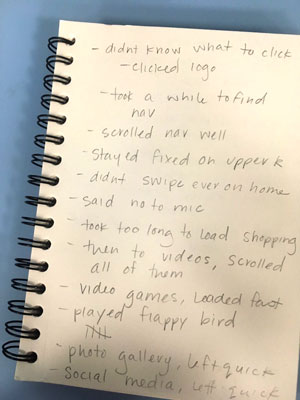 - didnt know what to click
- clicked logo
- took a while to find
nav
- scrolled nav well
- Stayed fixed on upper
- didnt swipe ever on home
- said no to mic
- took too long to load shopping
- then to videos, scrolled
all of them
- video games, Loaded fast
- played flappy bird
- photo gallery, left quick
- Social media, left quick